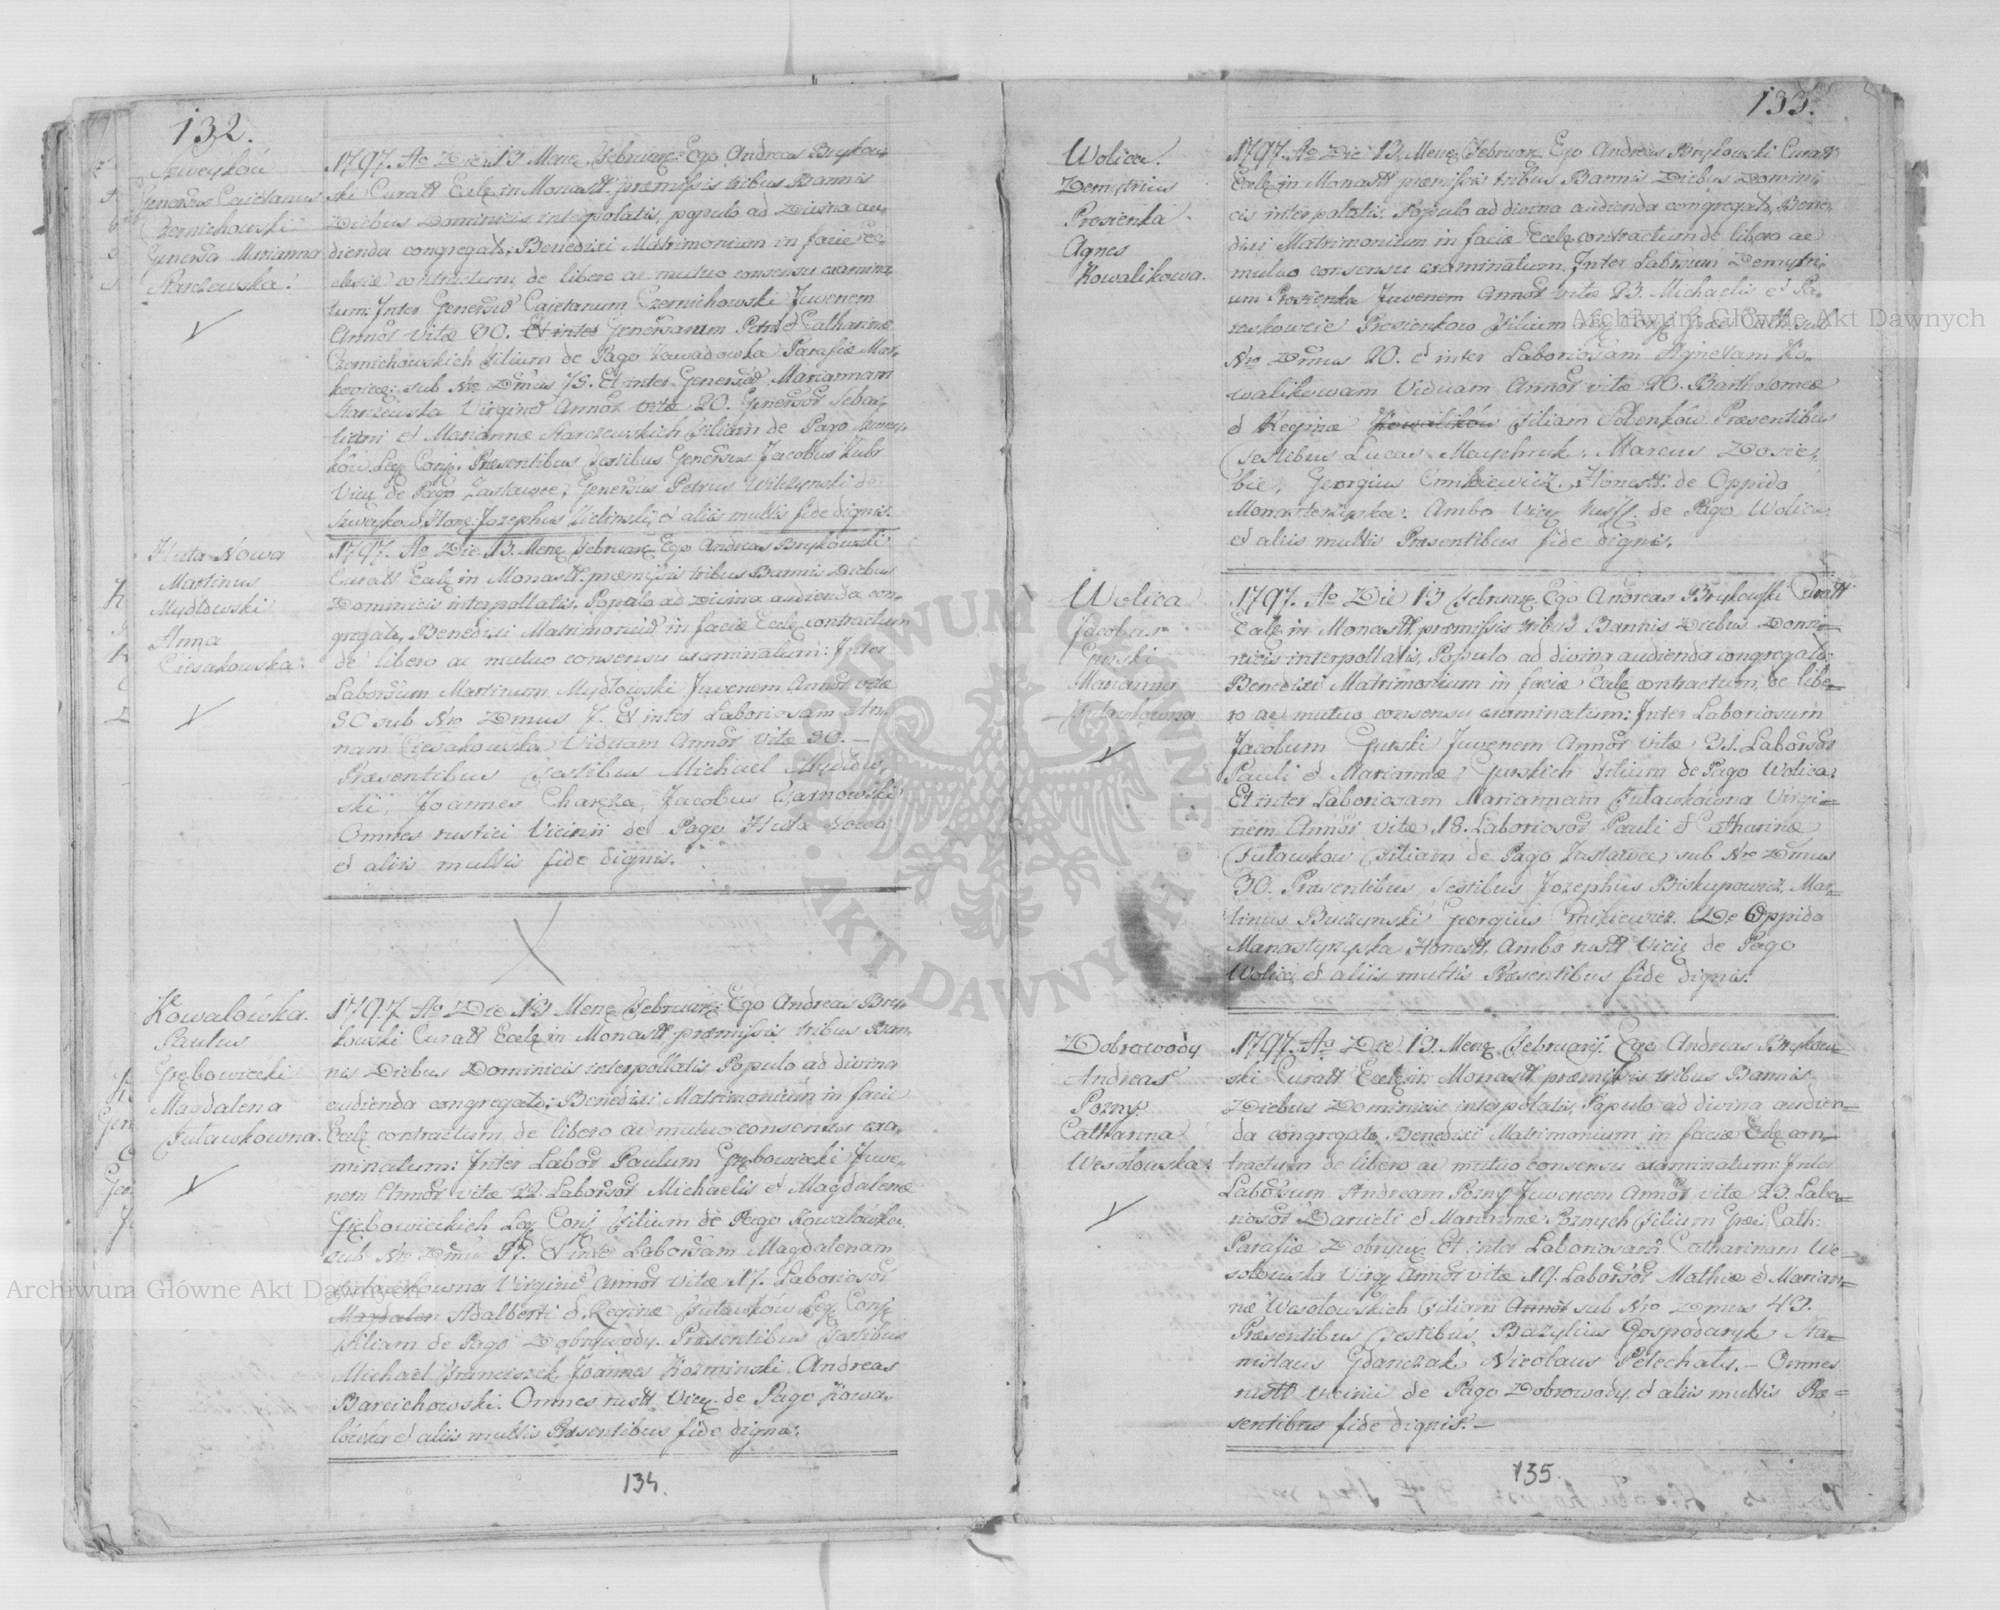 132.
Szweyków
Generosus Caietanus
Czernichowski
Generosa Marianna
Starzewska.
1797. Ao Die 13 Mene Februar. Ego Andreas Brykow-
ski Curatt Eccle in Monastt. præmissis tribus Bannis
Diebus Dominicis interpolatis, populo ad Divina au-
dienda congregato, Benedixi Matrimonium in facie Ec-
clesiæ contractum, de libero ac mutuo consensu examina-
tum: Inter Generosu Cajetanum Czernichowski Juvenem
Annor vitæ 30. Et inter Generosarum Petri et Catharinæ
Czernichowskich Filium de Pago Zawadowka Parafiæ
sub Nro Dmus 75. Et inter Generosa Mariannam
Starzewska Virgine Annor vitæ 20. Generosor Sebas-
tiani et Mariannæ Starzewskich Filiam de Pago Szwey-
ków Leg. Conj. Præsentibus Testibus Generosus Jacobus
de Pago Zastawce, Generosus Petrus Wilczynski de
Szweyków, Hone. Jozephus Zielinski, et aliis multis fide dignis.
Huta Nowa
Martinus
Mydłowski
Anna
Ciesakowska.
1797. Ao Die 13. Mene Februar. Ego Andreas Brykowski
Curatt Eccle in Monastt. præmissis tribus Bannis Diebus
Dominicis interpollatis, Populo ad Divina audienda con-
gregato, Benedixi Matrimoniu in faciæ Eccle contractum
de libero ac mutuo consensu examinatum: Inter
Laborosum Martinum Mydłowski Juvenem Annor vitæ
30 sub Nro Dmus 7. Et inter Laboriosam An-
nam Ciesakowska Viduam Annor vitæ 30.—
Præsentibus Testibus Michael Mydłow-
ski, Joannes Charęza, Jacobus Garnowski
Omnes rustici Vicinii de Pago Huta Nowa
et aliis multis fide dignis.
Kowalówka.
Paulus
Grębowiecki
Magdalena
Futawkowna.
1797. Ao Die 13 Mene Februar. Ego Andreas Bry-
kowski Curatt Eccle in Monastt præmissis tribus Ban-
nis Diebus Dominicis interpollatis Populo ad divina
audienda congregato; Benedixi Matrimonium in facie
Eccle contractum de libero ac mutuo consensu exa-
minatum: Inter Labor Paulum Grębowiecki Juve-
nem Annor vitæ 22 Laborsor Michaelis et Magdalenæ
Grębowieckich Leg Conj Filium de Pago Kowalówka.
sub Nro Dmus 97. Et inter Laborsam Magdalenam
Futawkowna Virgine Annor vitæ 17. Laboriosor
Magdalen Adalberti et Reginæ Futawków Leg Conj
Filiam de Pago Dobrywody. Præsentibus Testibus
Michael Franciszek, Joannes Kozminski. Andreas
Bareichowski. Omnes rustt Vicii. de Pago Kowa-
lówka et aliis multis Præsentibus fide dignis.
134.
133.
Wolica.
Demytrius
Prosienka.
Agnes
Kowalikowa.
1797. Ao Die 13. Mene Februar. Ego Andreas Brykowski Curatt
Eccle in Monastt præmissis tribus Bannis Diebus Domini-
cis interpolatis, Populo ad divina audienda congregato, Bene-
dixi Matrimonium in faciæ Eccle contractum de libero ac
mutuo consensu examinatum. Inter Labiosum Demytri-
um Prosienka Juvenem Annor vitæ 23. Michaelis et Pa-
raskoweie Prosienkow Filium
Nro Dmus 20. et inter Laboriosam Agnetam Ko-
walikowam Viduam Annor vitæ 20. Bartholomeæ
et Reginæ Kowalików Filiam Solenków Præsentibus
Testibus Lucas Maychryk, Marcus
Georgius Emikiewicz. Honestt. de Oppido
Monasterzyska. Ambo Vicii de Pago Wolica.
et aliis multis Præsentibus fide dignis.
Wolica
Jacobus
Gurski
Marianna
Futawkowna
1797. Ao Die 13 Februar. Ego Andreas Brykowski Curatt
Eccle in Monastt præmissis tribus Bannis Diebus Domi-
nicis interpollatis, Populo ad divina audienda congregato;
Benedixi Matrimonium in faciæ Eccle contractum, de libe-
ro ac mutuo consensu examinatum: Inter Laboriosum
Jacobum Gurski Juvenem Annor vitæ 31. Laborsor
Pauli et Mariannæ Gurskich Filium de Pago Wolica.
Et inter Laboriosam Mariannam Futawkowna Virgi-
nem Annor vitæ 18. Laboriosor Pauli et Catharinæ
Futawkow Filiam de Pago Zastawce, sub Nro Dmus
30. Præsentibus Testibus Jozephus Biskupowicz, Mar-
tinus Buczynski Georgius Emikiewicz. De Oppido
Manastyrzyska Honestt. Ambo rustt Vicii de Pago
Wolica, et aliis multis Præsentibus fide dignis.
Dobrowody
Andreas
Pozny.
Catharina
Wesołowska.
1797. Ao Die 13. Mene Februarij. Ego Andreas Brykow-
ski Curatt Eccle in Monastt præmissis tribus Bannis
Diebus Dominicis interpolatis, Populo ad divina audien-
da congregato, Benedixi Matrimonium in faciæ Eccle con-
tractum de libero ac mutuo consensu examinatum: Inter
Laborsum Andream Pozny Juvenem Annor vitæ 23. Labo-
riosor Danieli et Mariannæ Poznych Filium Græci Cath:
Parafiæ Dobryw. Et inter Laboriosam Catharinam We-
sołowska Virg Annor vitæ 19. Laborsor Mathiæ et Marian-
næ Wesołowskich Filiam Annor sub Nro Dmus 43.
Præsentibus Testibus Bazylius Gospodaryk Sta-
nislaus Gdanczak Nicolaus Pelechaty.— Omnes
rustt vicinii de Pago Dobrowody. et aliis multis Præ-
sentibus fide dignis.—
135.
Archiwum Główne Akt Dawnych
Archiwum Główne Akt Dawnych
ARCHIWUM GŁÓWNE
AKT DAWNYCH